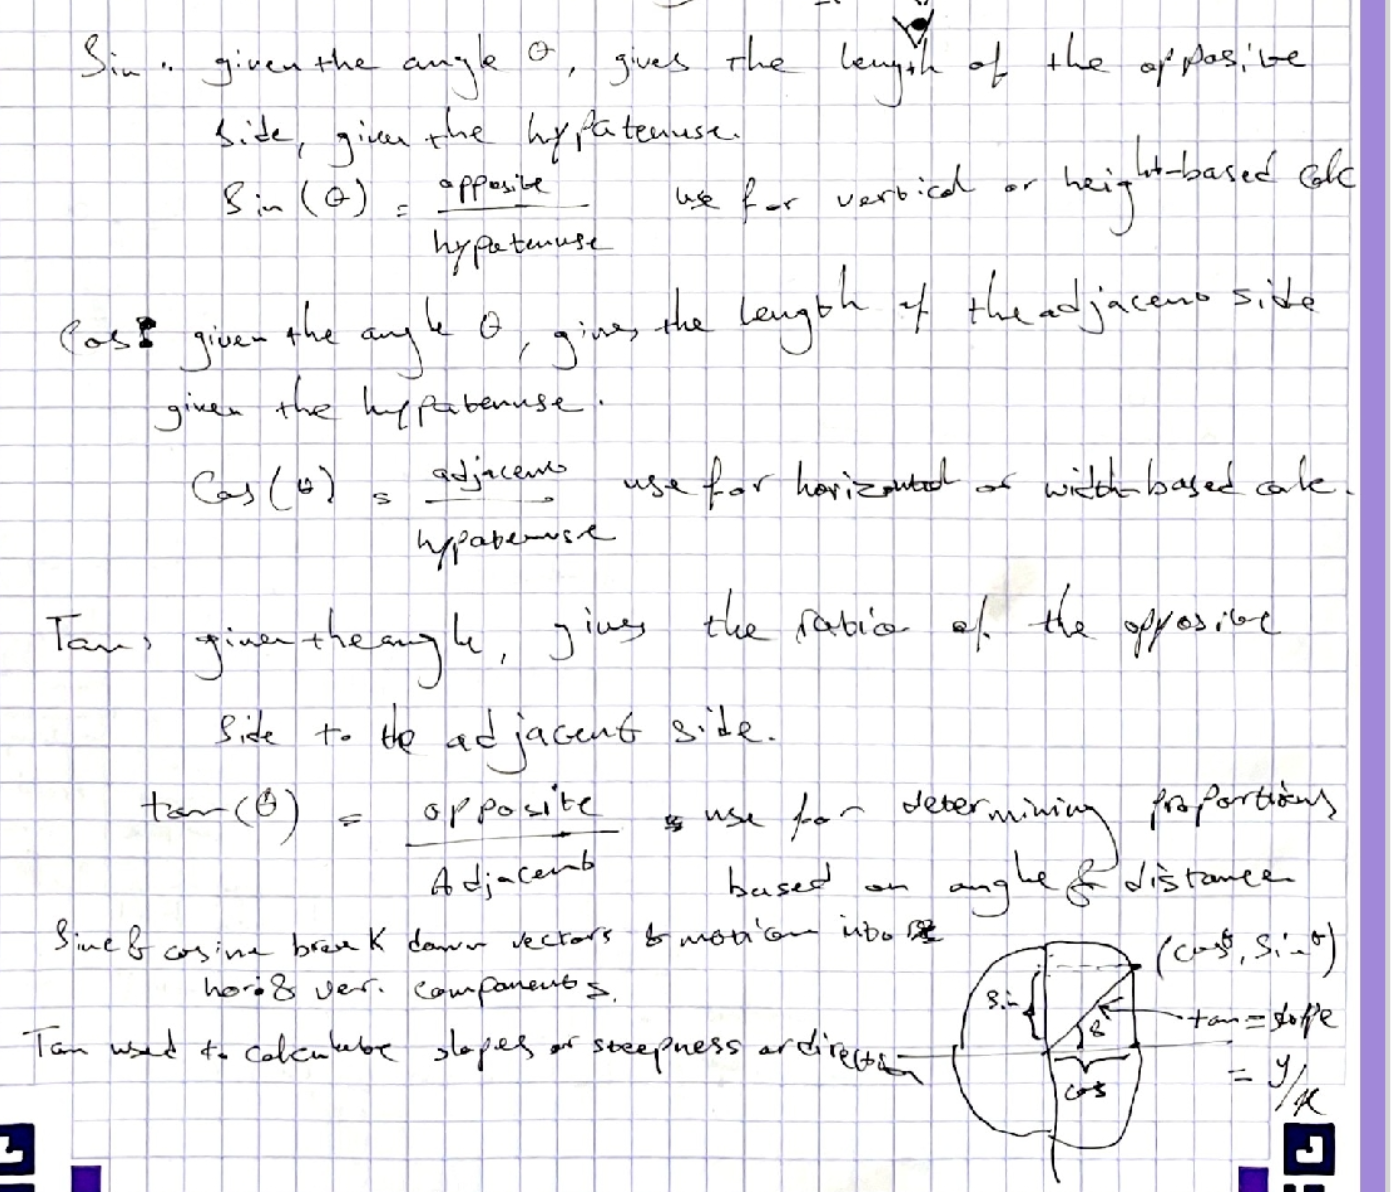 Sin: given the angle θ, gives the length of the opposite
side, given the hypotenuse.
Sin(θ) = opposite / hypotenuse use for vertical or height-based calc
Cos: given the angle θ, gives the length of the adjacent side
given the hypotenuse.
Cos(θ) = adjacent / hypotenuse use for horizontal or width-based calc.
Tan: given the angle, gives the ratio of the opposite
side to the adjacent side.
tan(θ) = opposite / Adjacent use for determining proportions
based on angle & distance
Sine & cosine break down vectors & motion into
hori & ver. components.
Tan used to calculate slopes or steepness or direction
(cosθ, Sinθ)
Sin
θ
tan = slope
= y/x
cos